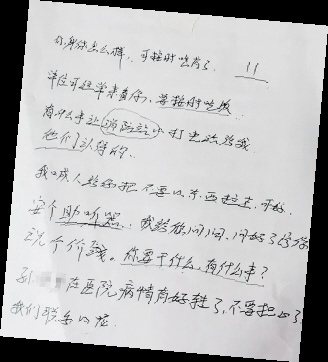 你身体怎么样，可按时吃药了
单位可经常来看你，要按时吃饭
有什么事让消防站小打电话给我
他们认得的
我喊人给你把不要的东西拉走，可好
安个助听器 我给你问问，问好了给你
说个价钱。你要干什么，有什么事？
孙 在医院病情有好转了，不要担心了
我们联系的